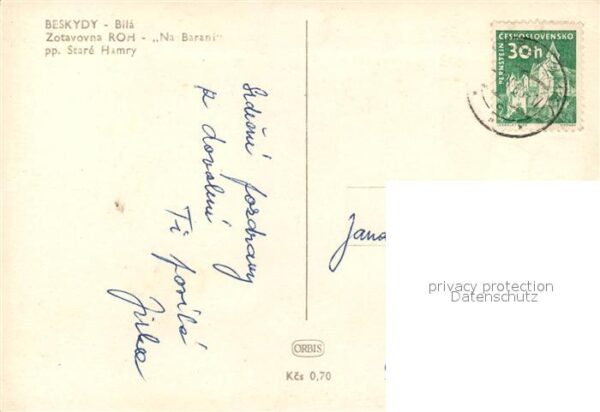 BESKYDY - Bílá
Zotavovna ROH - „Na Baraní"
pp. Staré Hamry
Srdečné pozdravy
z dovolené
Ti posílá
Jirka
ČESKOSLOVENSKO
30h
PERNŠTEJN
Jana
privacy protection
Datenschutz
ORBIS
Kčs 0,70